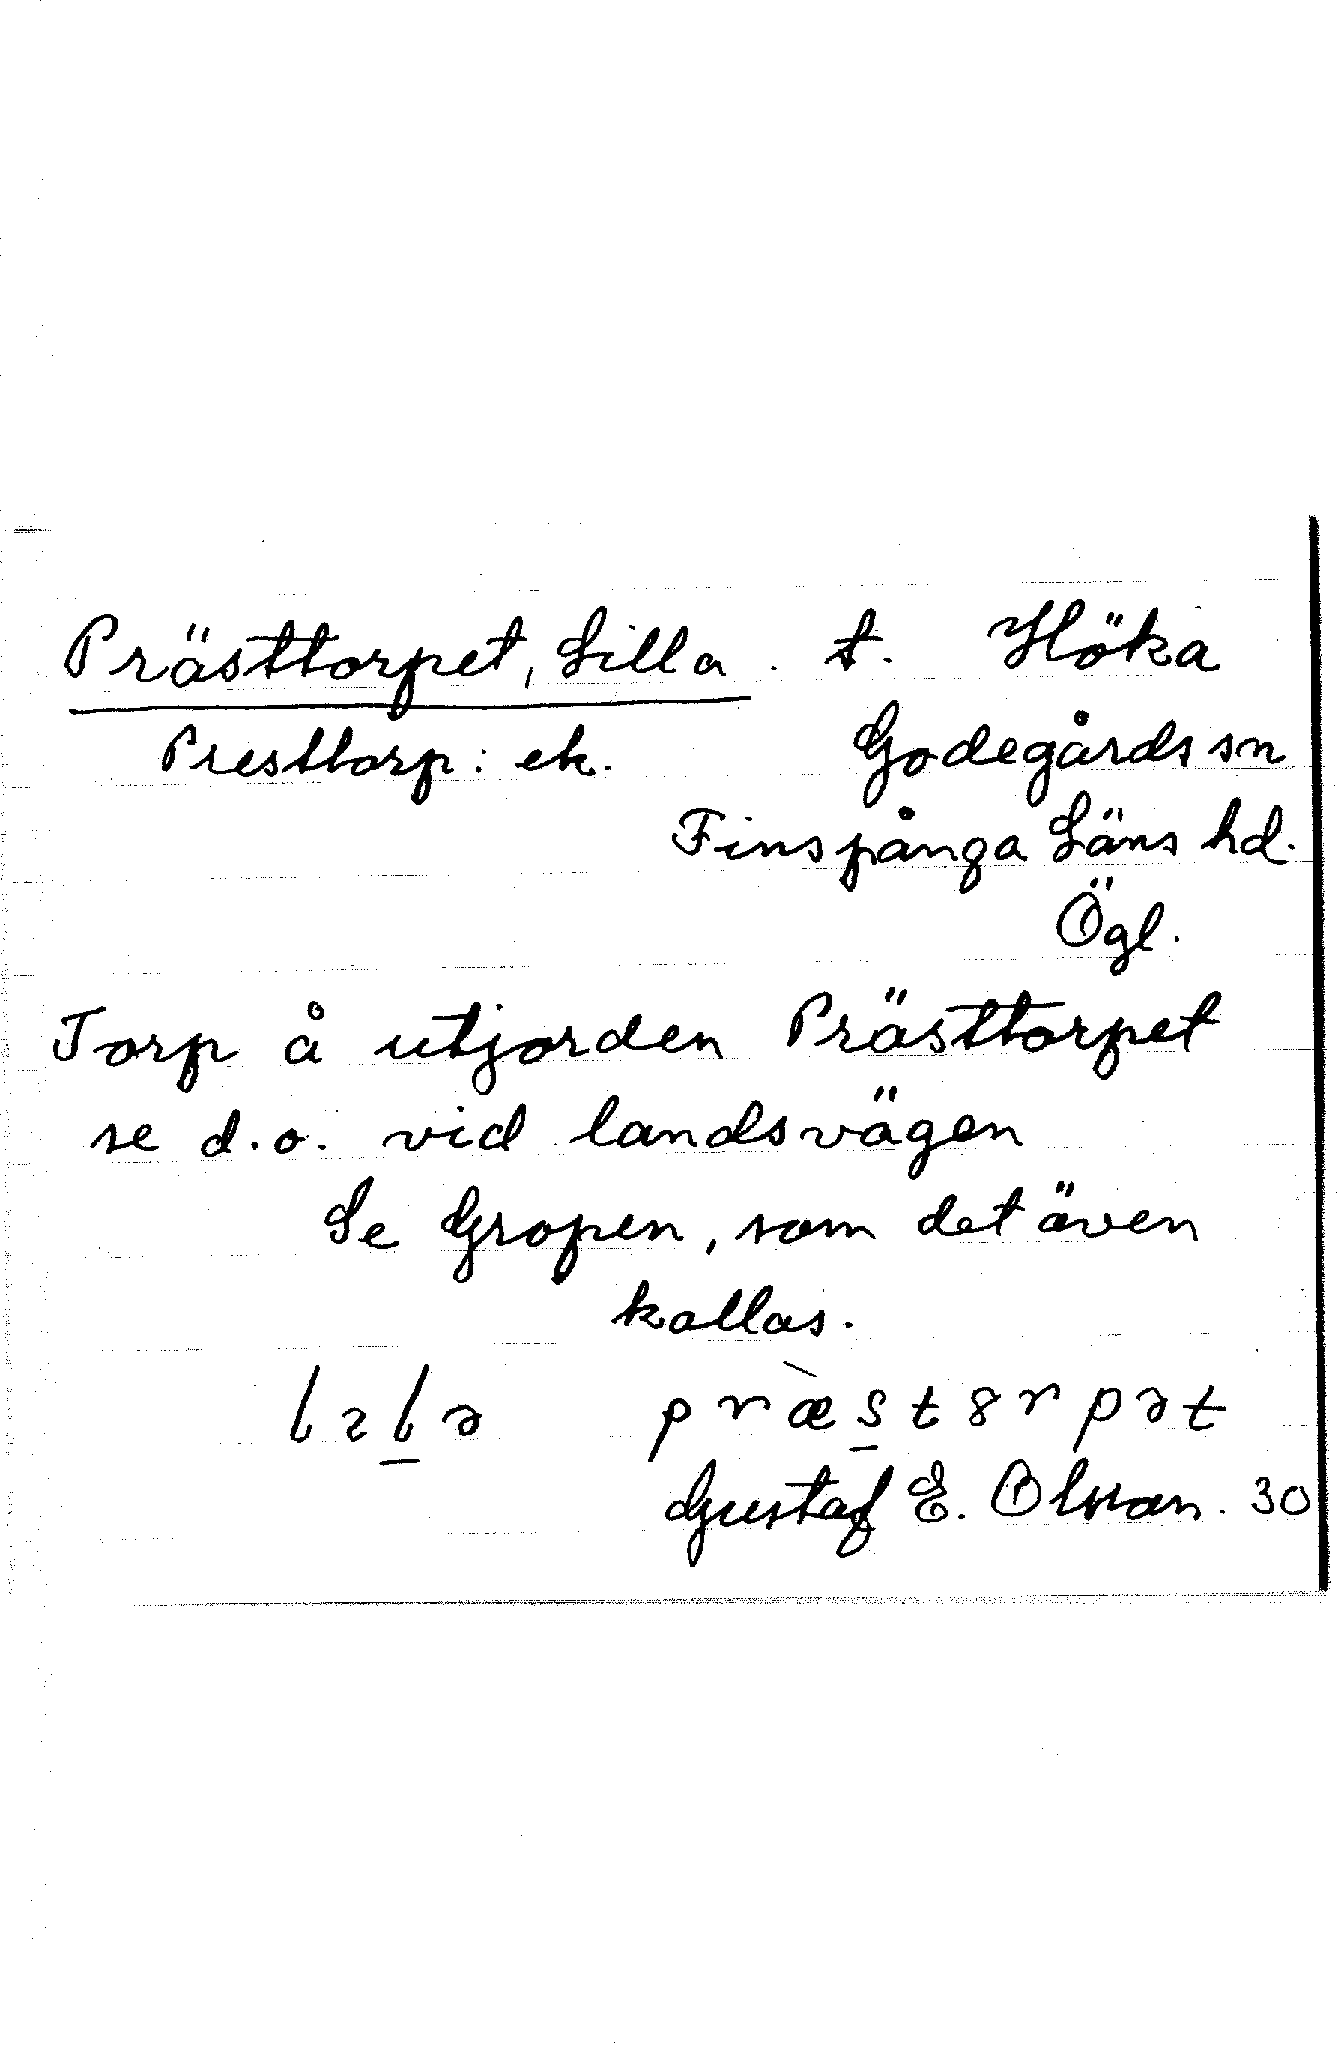 Prästtorpet, Lilla . t. Höka
Presttorp: ek. Godegårds sn
Finspånga Läns hd.
Ögl.
Torp å utjorden Prästtorpet
se d.o. vid landsvägen
Se Gropen, som det även
kallas.
præ̀s̲t8rpət
Gustaf E. Olsson. 30